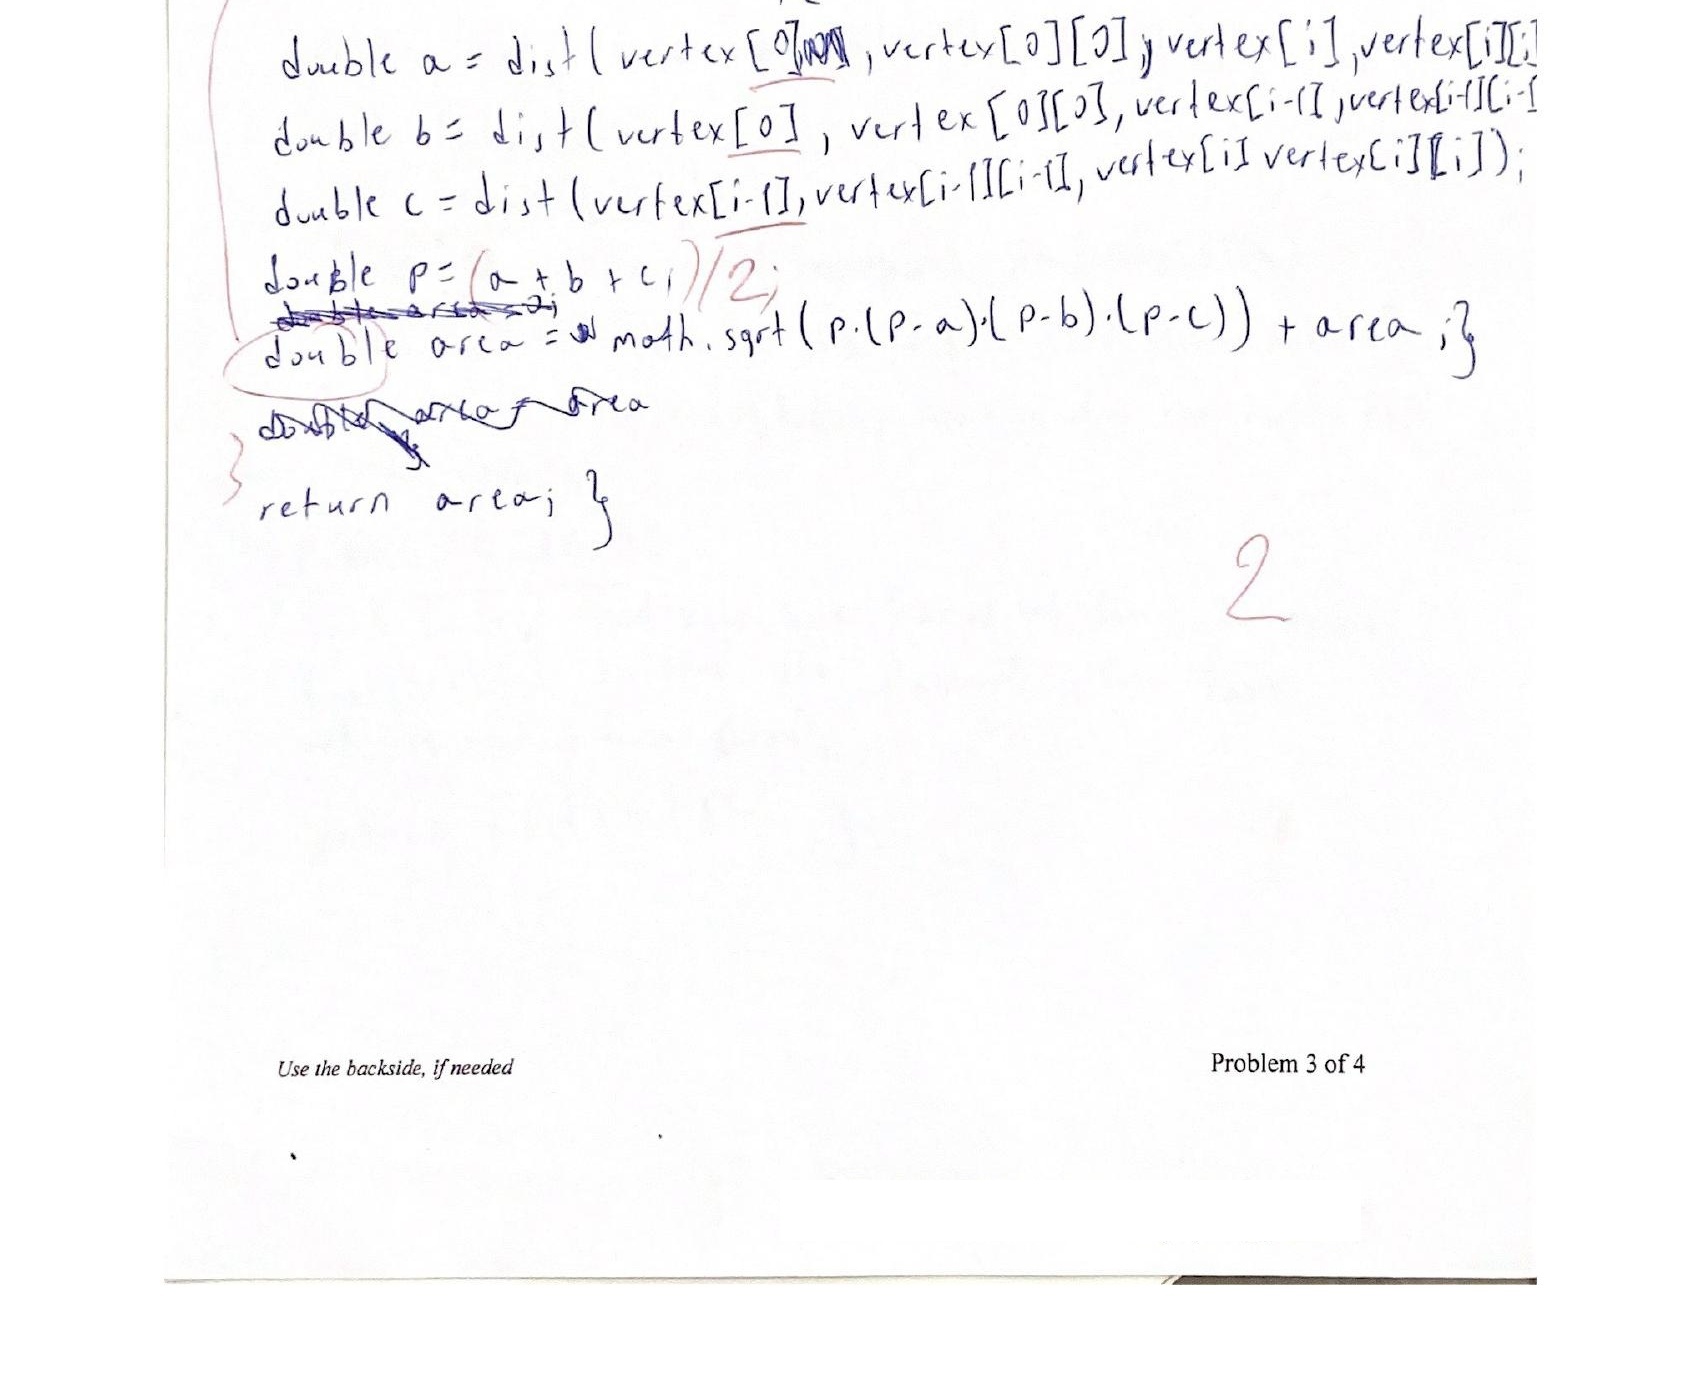 double a = dist ( vertex [0] , vertex[0][0], vertex[i], vertex[i][i]
double b = dist ( vertex[0] , vertex [0][0], vertex[i-1], vertex[i-1][i-1
double c = dist ( vertex[i-1], vertex[i-1][i-1], vertex[i] vertex[i][i]);
double p = (a + b + c;)/2;
double area = 0;
double area = math.sqrt ( p.(p-a).(p-b).(p-c)) + area ; }
double area = area
}
}
return area; }
2
Use the backside, if needed
Problem 3 of 4